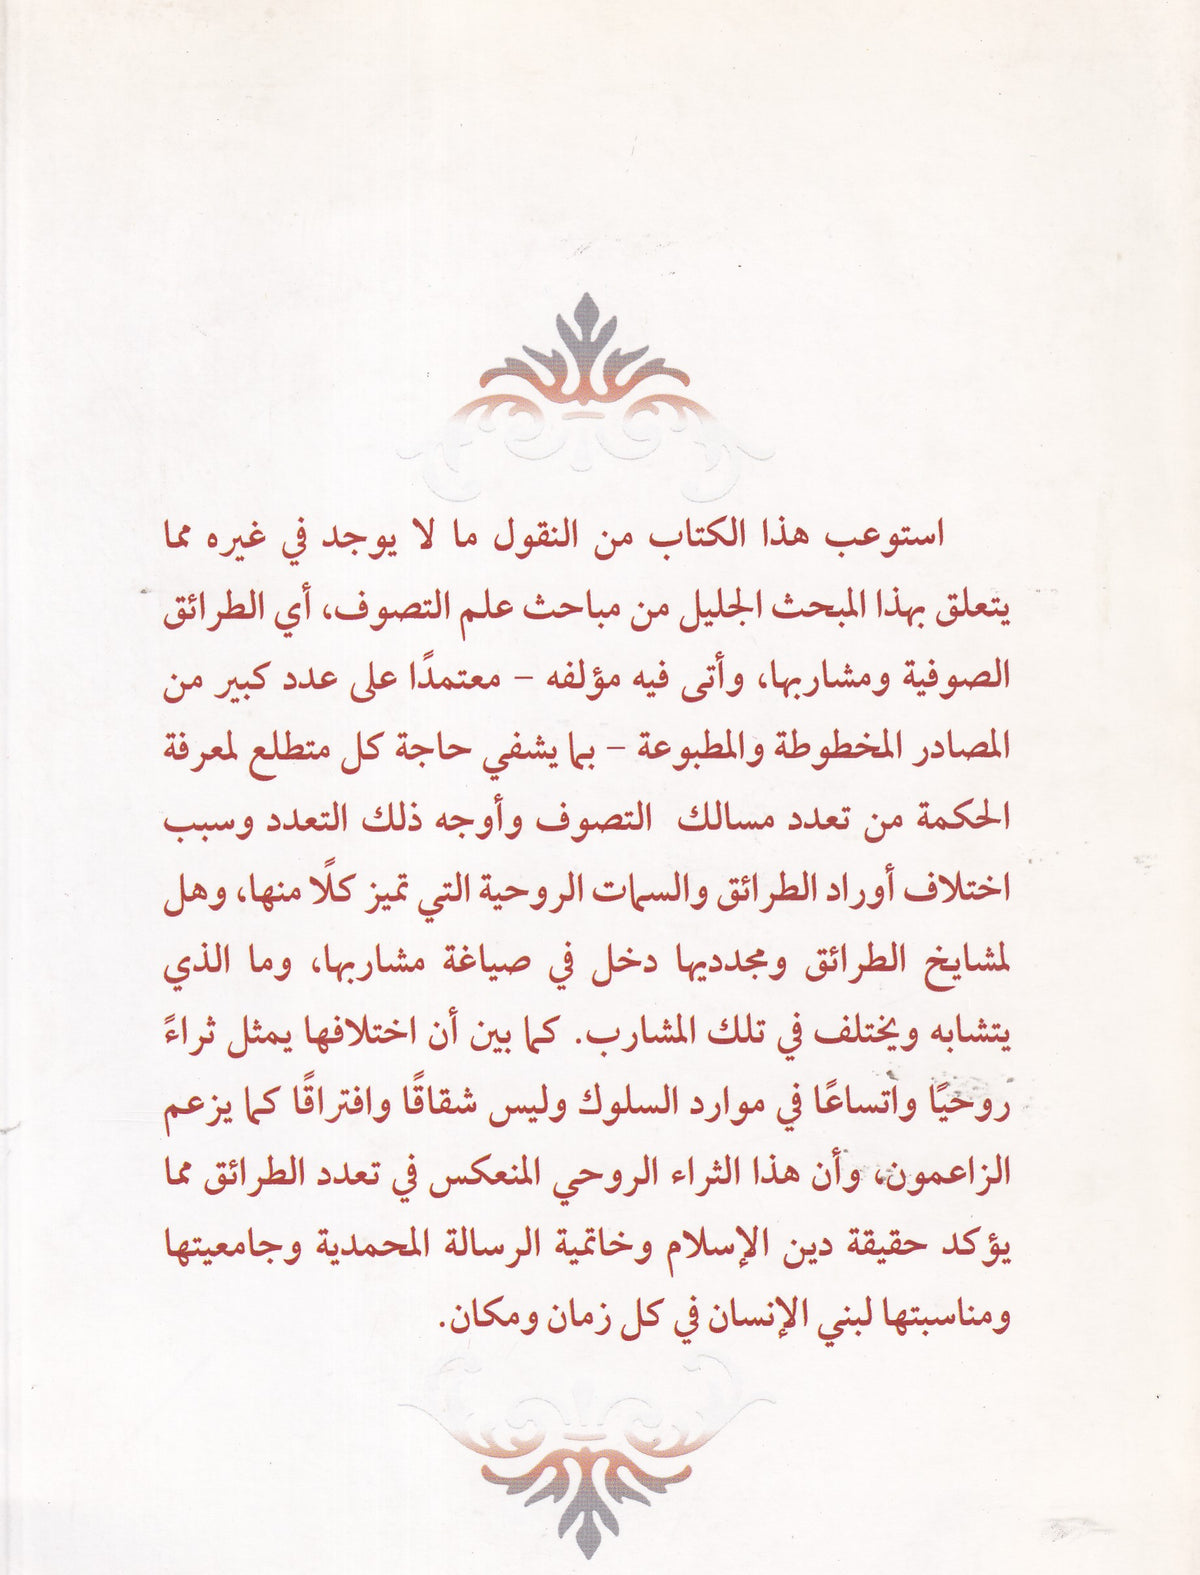 استوعب هذا الكتاب من النقول ما لا يوجد في غيره مما
يتعلق بهذا المبحث الجليل من مباحث علم التصوف، أي الطرائق
الصوفية ومشاربها، وأتى فيه مؤلفه – معتمدًا على عدد كبير من
المصادر المخطوطة والمطبوعة – بما يشفي حاجة كل متطلع لمعرفة
الحكمة من تعدد مسالك التصوف وأوجه ذلك التعدد وسبب
اختلاف أوراد الطرائق والسمات الروحية التي تميز كلًا منها، وهل
لمشايخ الطرائق ومجدديها دخل في صياغة مشاربها، وما الذي
يتشابه ويختلف في تلك المشارب. كما بين أن اختلافها يمثل ثراءً
روحيًا واتساعًا في موارد السلوك وليس شقاقًا وافتراقًا كما يزعم
الزاعمون، وأن هذا الثراء الروحي المنعكس في تعدد الطرائق مما
يؤكد حقيقة دين الإسلام وخاتمية الرسالة المحمدية وجامعيتها
ومناسبتها لبني الإنسان في كل زمان ومكان.